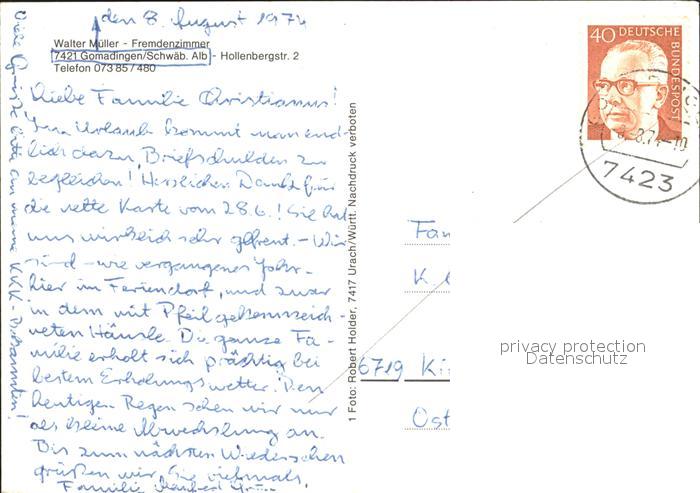 den 8. August 1974
Walter Müller - Fremdenzimmer
7421 Gomadingen/Schwäb. Alb - Hollenbergstr. 2
Telefon 073 85 / 480
Liebe Familie Christianus!
Im Urlaub kommt man end-
lich dazu, Briefschulden zu
begleichen! Herzlichen Dank für
die nette Karte vom 28.6.! Sie hat
uns wirklich sehr gefreut. - Wir
sind - wie vergangenes Jahr -
hier im Feriendorf, und zwar
in dem mit Pfeil gekennzeich-
neten Häusle. Die ganze Fa-
milie erholt sich prächtig bei
bestem Erholungswetter. Den
heutigen Regen sehen wir nur
als kleine Abwechslung an.
Bis zum nächsten Wiedersehen
grüßen wir Sie vielmals,
Familie Manfred
Viele Grüsse bitte an meine KKK-Bekannten!
1 Foto: Robert Holder, 7417 Urach/Württ. Nachdruck verboten
40 DEUTSCHE
BUNDESPOST
-8.74-10
7423
Fam
K
6719 Ki
Ost
privacy protection
Datenschutz